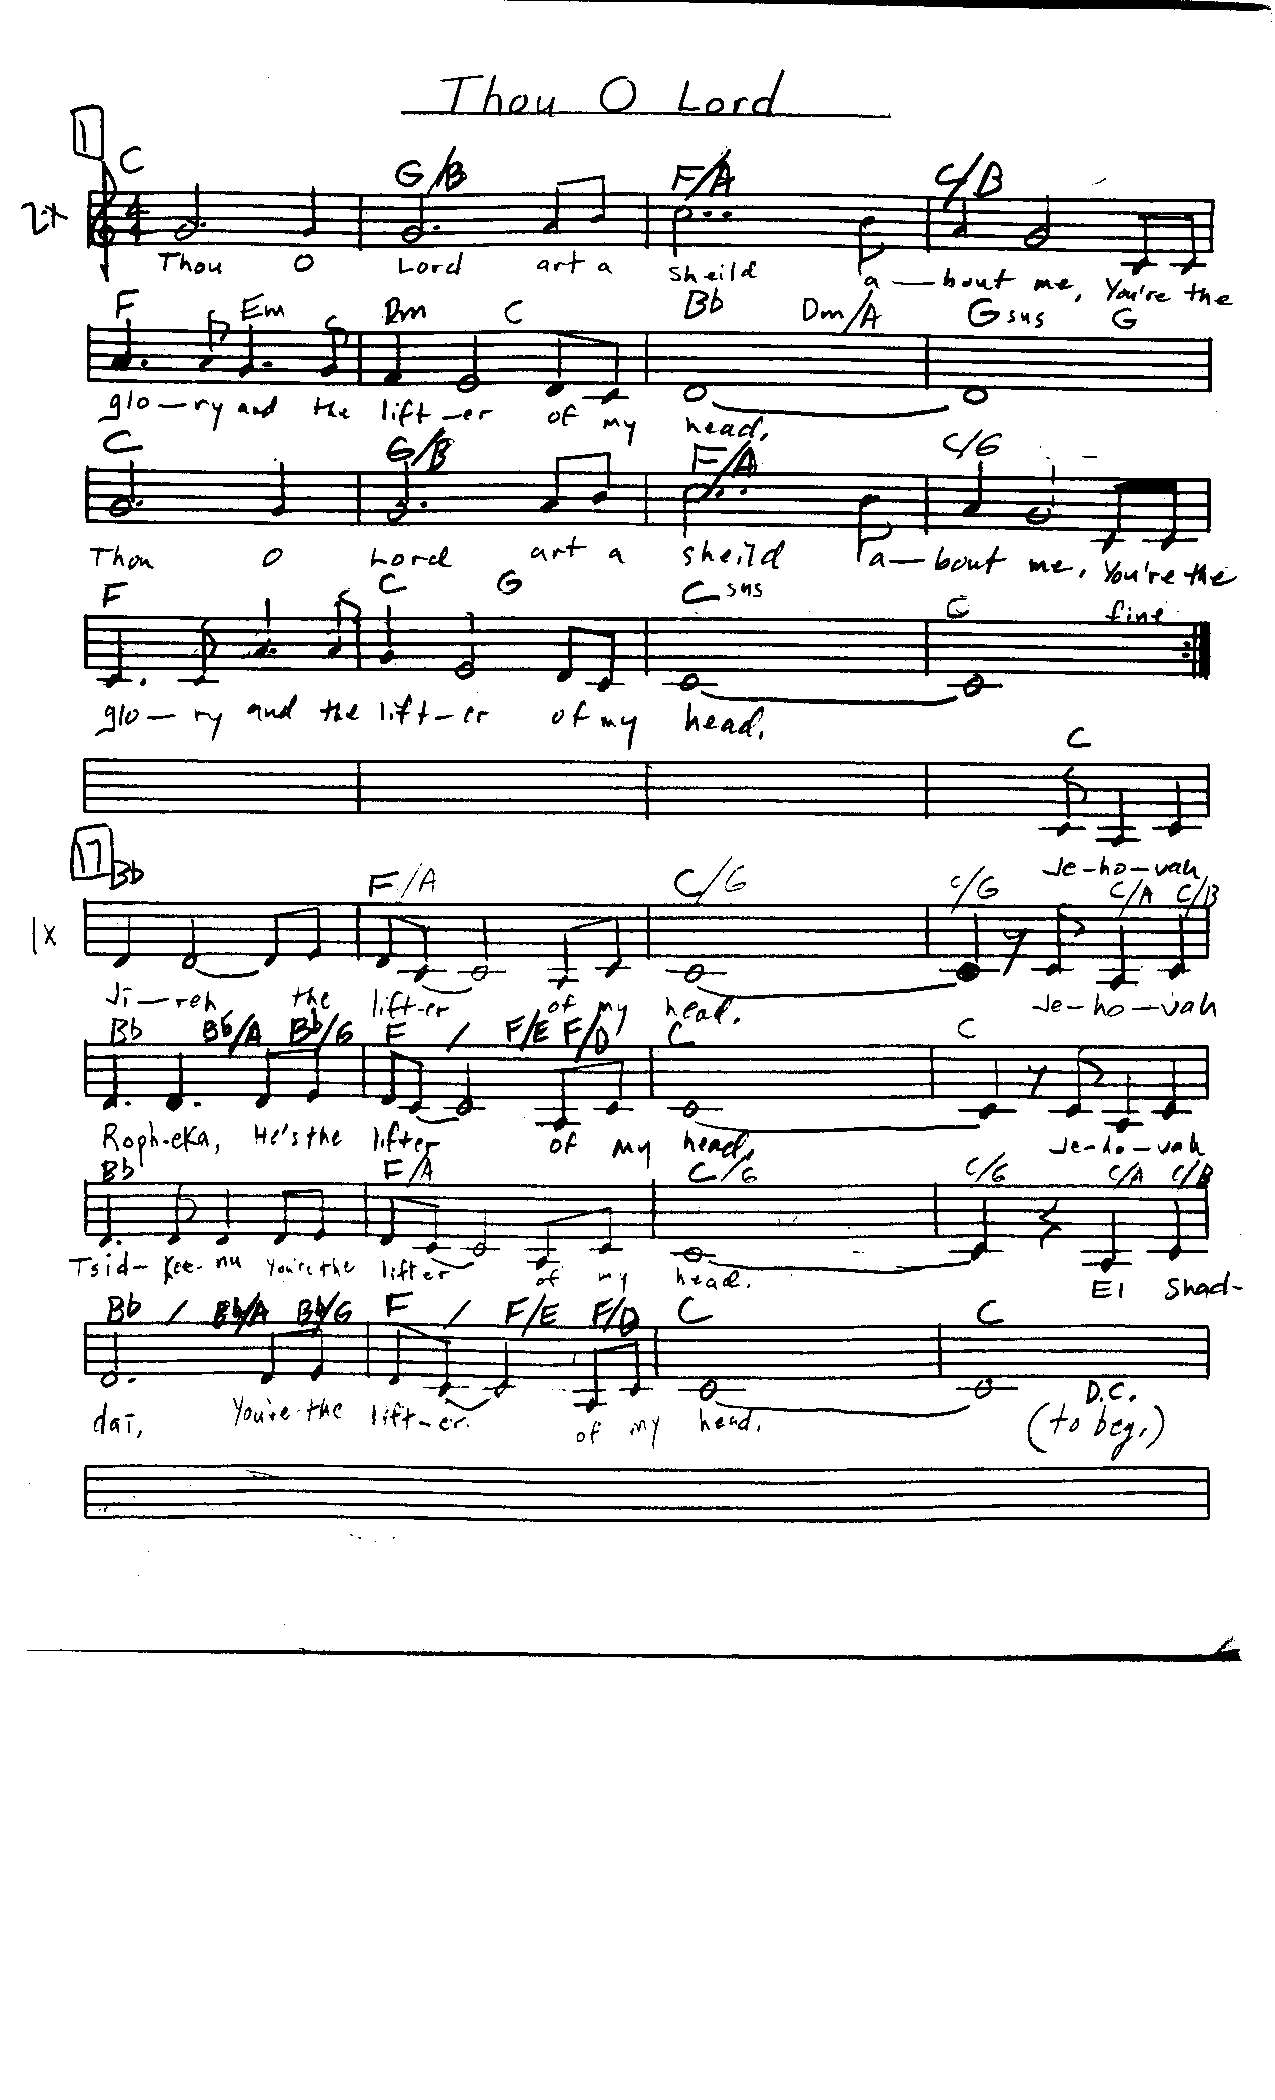 Thou O Lord
1
C G/B F/A C/B
2x
4
4
Thou O Lord art a sheild a—bout me, You're the
F Em Dm C Bb Dm/A Gsus G
glo—ry and the lift—er of my head.
C G/B F/A C/G
Thou O Lord art a sheild a—bout me, You're the
F C G Csus C fine
glo—ry and the lift—er of my head.
C
Je-ho-vah
17
Bb F/A C/G C/G C/A C/B
1x
Ji—reh the lift-er of my head. Je-ho-vah
Bb Bb/A Bb/G F / F/E F/D C C
Roph-eKa, He's the lifter of my head, Je-ho-vah
Bb F/A C/G C/G C/A C/B
Tsid-Kee-nu You're the lifter of my head. El Shad-
Bb / Bb/A Bb/G F / F/E F/D C C
dai, You're the lift-er. of my head.
D.C.
(to beg.)